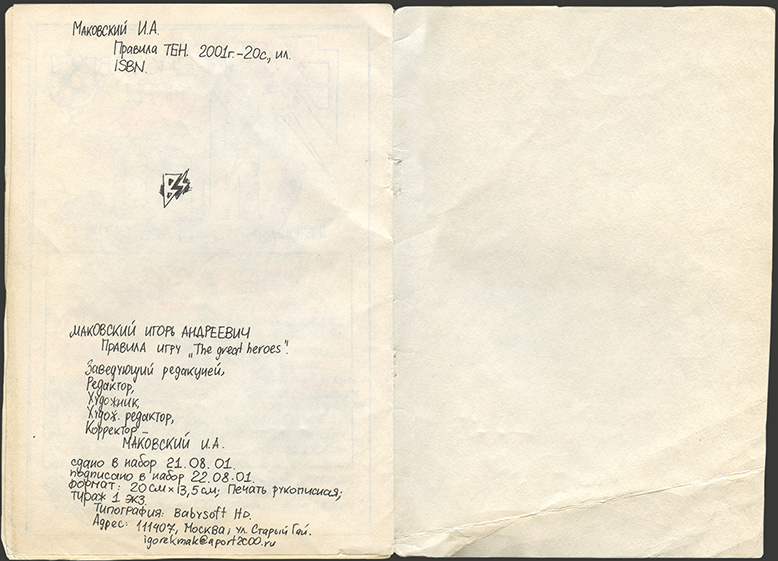 Маковский И.А.
Правила ТБН. 2001г.-20с., ил.
ISBN.
BS
МАКОВСКИЙ ИГОРЬ АНДРЕЕВИЧ
Правила игру „The great heroes".
Заведующий редакцией,
Редактор,
Художник,
Худож. редактор,
Корректор –
МАКОВСКИЙ И.А.
сдано в набор 21.08.01.
подписано в набор 22.08.01.
формат: 20см×13,5см; Печать рукописная;
тираж 1 экз.
Типография: Babysoft HD.
Адрес: 111907, Москва; ул. Старый Гай.
igorekmak@aport2000.ru